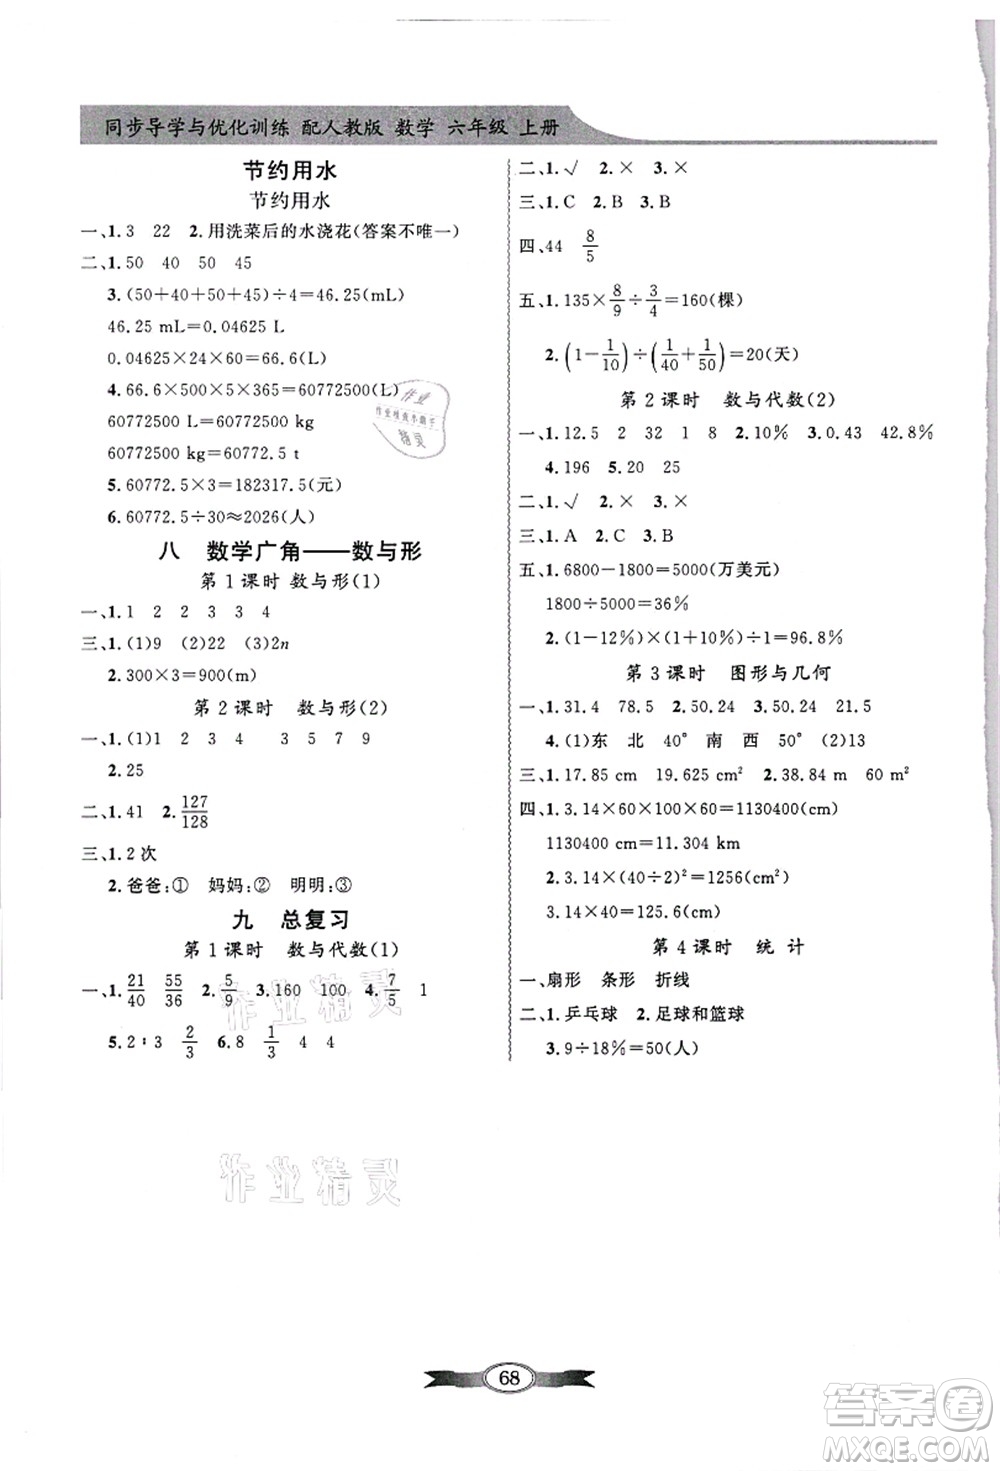 同步导学与优化训练 配人教版 数学 六年级 上册
节约用水
节约用水
一、1.3 22 2.用洗菜后的水浇花(答案不唯一)
二、1.50 40 50 45
3.(50+40+50+45)÷4=46.25(mL)
46.25 mL=0.04625 L
0.04625×24×60=66.6(L)
4.66.6×500×5×365=60772500(L)
60772500 L=60772500 kg
60772500 kg=60772.5 t
5.60772.5×3=182317.5(元)
6.60772.5÷30≈2026(人)
八 数学广角——数与形
第1课时 数与形(1)
一、1.1 2 2 3 3 4
三、1.(1)9 (2)22 (3)2n
2.300×3=900(m)
第2课时 数与形(2)
一、1.(1)1 2 3 4 3 5 7 9
2.25
二、1.41 2.127/128
三、1.2次
2.爸爸:① 妈妈:② 明明:③
九 总复习
第1课时 数与代数(1)
一、1.21/40 55/36 2.5/9 3.160 100 4.7/5 1
5.2∶3 2/3 6.8 1/3 4 4
二、1.√ 2.× 3.×
三、1.C 2.B 3.B
四、44 8/5
五、1.135×8/9÷3/4=160(棵)
2.(1-1/10)÷(1/40+1/50)=20(天)
第2课时 数与代数(2)
一、1.12.5 2 32 1 8 2.10% 3.0.43 42.8%
4.196 5.20 25
二、1.√ 2.× 3.×
三、1.A 2.C 3.B
五、1.6800-1800=5000(万美元)
1800÷5000=36%
2.(1-12%)×(1+10%)÷1=96.8%
第3课时 图形与几何
一、1.31.4 78.5 2.50.24 3.50.24 21.5
4.(1)东 北 40° 南 西 50° (2)13
三、1.17.85 cm 19.625 cm² 2.38.84 m 60 m²
四、1.3.14×60×100×60=1130400(cm)
1130400 cm=11.304 km
2.3.14×(40÷2)²=1256(cm²)
3.14×40=125.6(cm)
第4课时 统计
一、扇形 条形 折线
二、1.乒乓球 2.足球和篮球
3.9÷18%=50(人)
作业精灵
作业精灵
68
答案圈
MXQE.COM